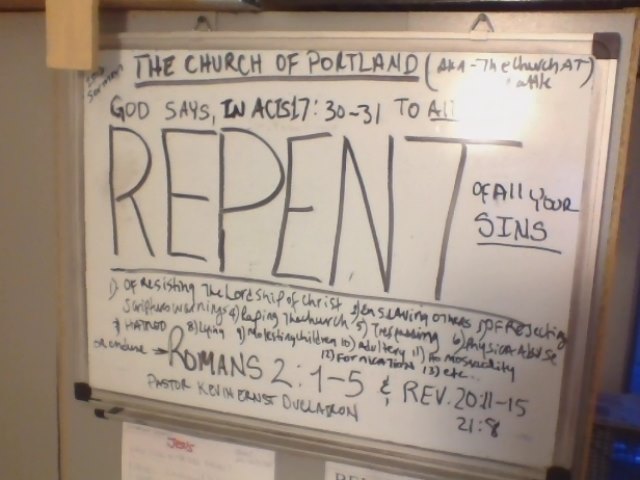 THE CHURCH OF PORTLAND (AKA-The Church AT
GOD SAYS, IN ACTS 17:30-31 TO All
REPENT
OF All YOUR
SINS
1) OF RESISTING The Lordship OF Christ 2) ENSLAVING OTHERS 3) OF REJECTING
SCRIPTURES WARNINGS 4) Raping The Church 5) Trespassing 6) Physical Abuse
7) HATRED 8) Lying 9) Molesting Children 10) Adultery 11) Homosexuality
12) FORNICATION 13) etc...
or endure → ROMANS 2:1-5 & REV. 20:11-15
21:8
PASTOR KEVIN ERNST
Jesus